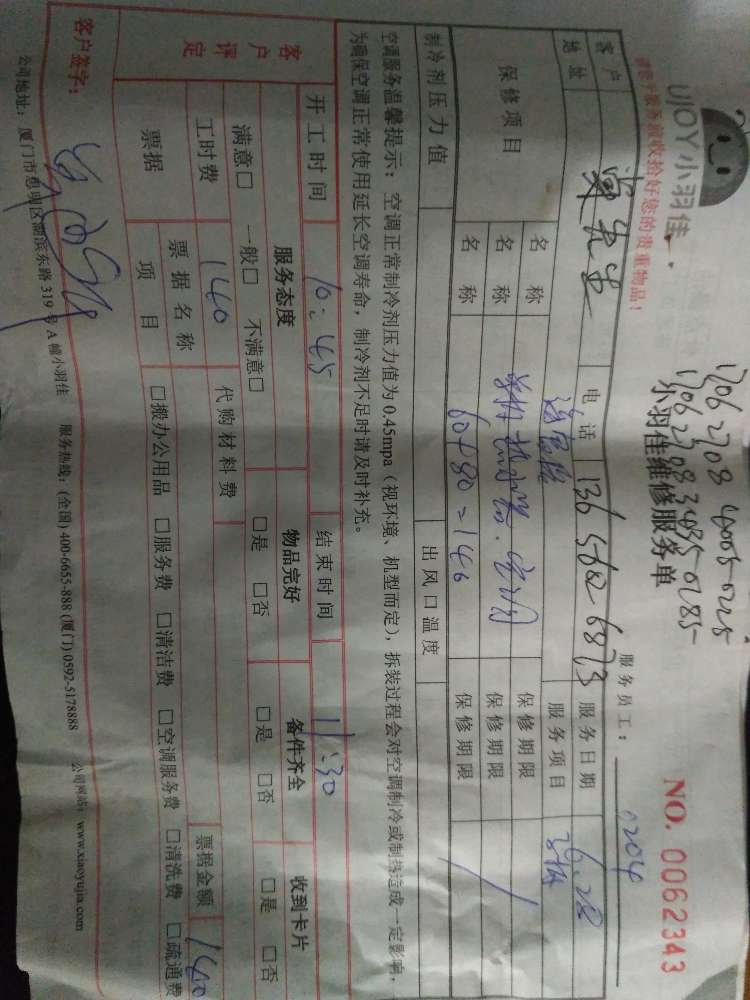 UJOY小羽佳
请您于服务前收拾好您的贵重物品！
1706 2708 4005-0225
1706 2708 3435-0285
小羽佳维修服务单
NO. 0062343
服务员工： 0204
客户 电话 136 5602 6873 服务日期 6.28
地址 服务项目
保修项目
名称 保修期限
名称 保修期限
名称 60+80=140 保修期限
制冷剂压力值 出风口温度
空调服务温馨提示：空调正常制冷剂压力值为0.45mpa（视环境、机型而定），拆装过程会对空调制冷或制热造成一定影响，
为确保空调正常使用延长空调寿命，制冷剂不足时请及时补充。
开工时间 10:45 结束时间 11:30
客户评定
服务态度 物品完好 备件齐全 收到卡片
满意□ 一般□ 不满意□ □是 □否 □是 □否 □是 □否
工时费 140 代购材料费 票据金额 140
票据 票据名称项目 □搬办公用品 □服务费 □清洁费 □空调服务费 □清洗费 □疏通费
客户签字：
公司地址：厦门市思明区湖滨东路319号A幢小羽佳 服务热线：(全国) 400-6655-888 (厦门) 0592-5178888 公司网站：www.xiaoyujia.com